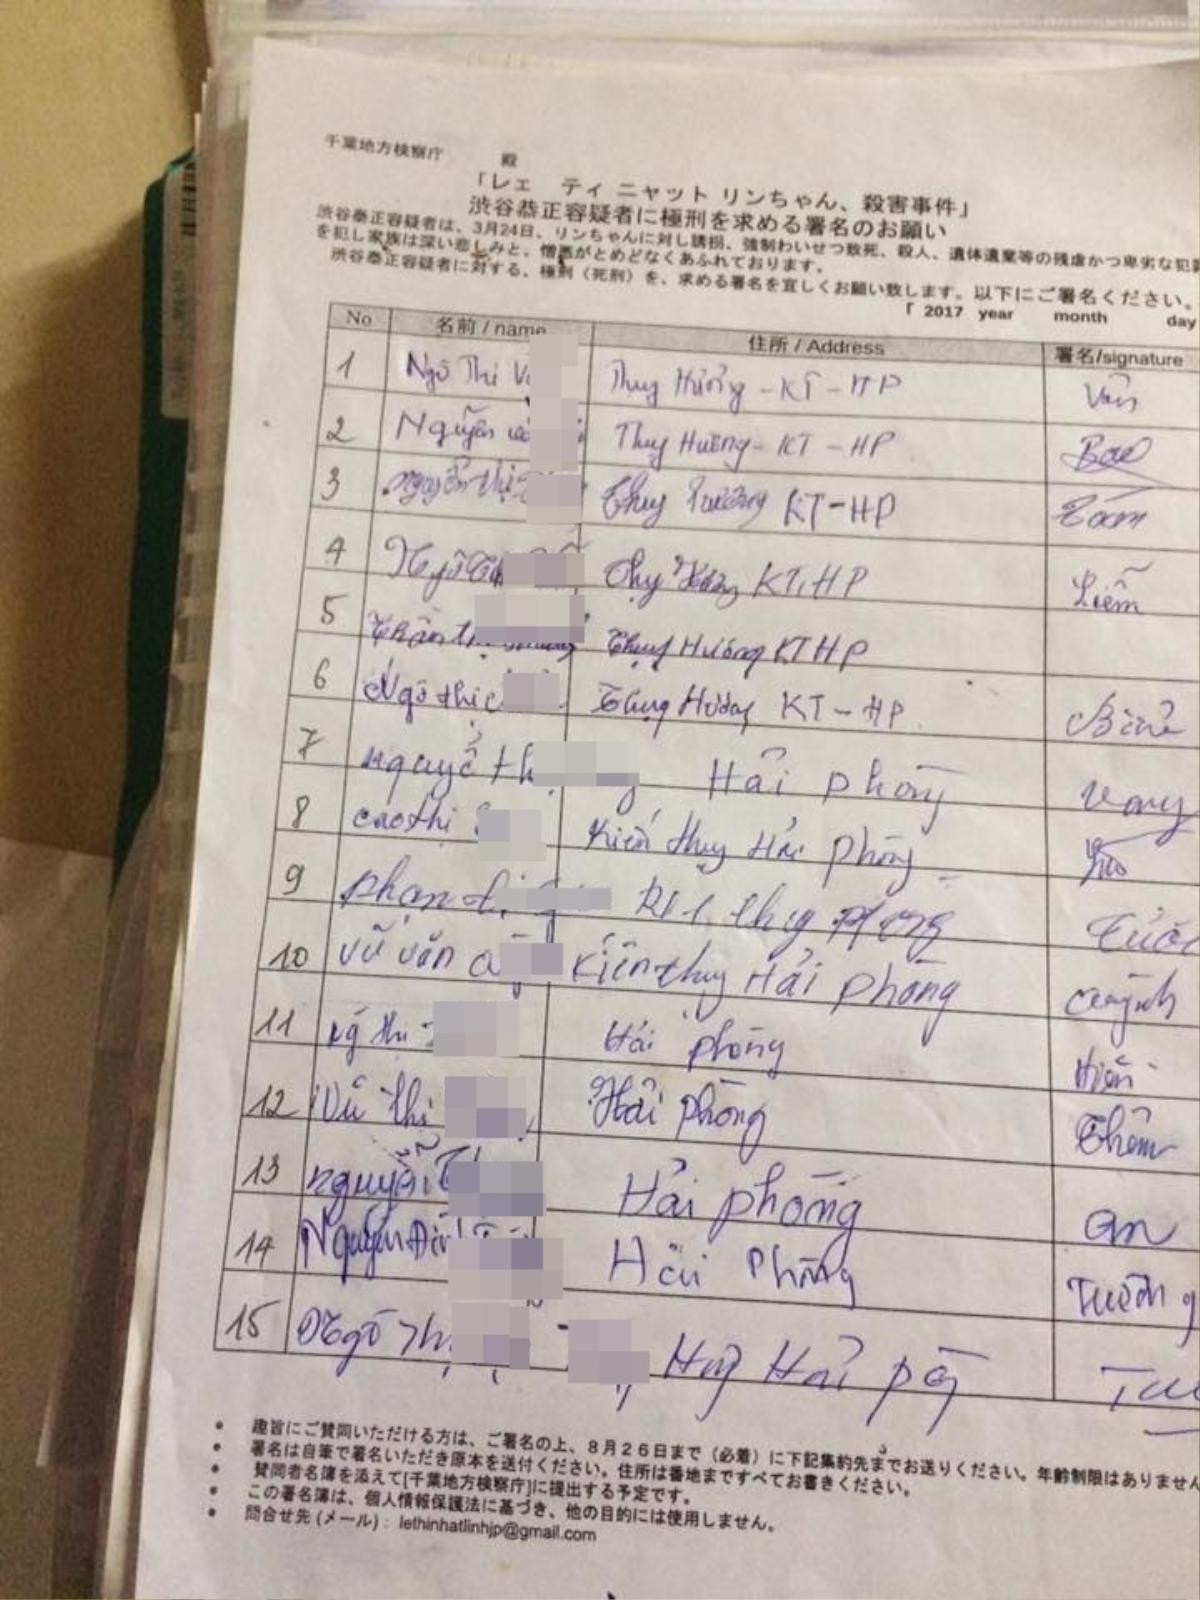 千葉地方検察庁 殿
「レェ ティ ニャット リンちゃん、殺害事件」
渋谷恭正容疑者に極刑を求める署名のお願い
渋谷泰正容疑者は、3月24日、リンちゃんに対し誘拐、強制わいせつ致死、殺人、遺体遺棄等の残虐かつ卑劣な犯罪
を犯し家族は深い悲しみと、憎悪がとめどなくあふれております。
渋谷泰正容疑者に対する、極刑（死刑）を、求める署名を宜しくお願い致します。以下にご署名ください。
「 2017 year month day
No 名前 / name 住所 / Address 署名/signature
1 Ngô Thị Thuỵ Hương - KT - HP Vân
2 Nguyễn Thuỵ Hương - KT - HP
3 Nguyễn thị Thuỵ Hương KT-HP
4 Ngô KT, HP Liễm
5 Trần Thuỵ Hương KT HP
6 Ngô thị Hương KT - HP
7 nguyễ th Hải phòng
8 cao thị Kiến thuỵ Hải phòng
9 phạn thuỵ phòng
10 vũ văn Kiến thuỵ Hải phòng Quỳnh
11 thị Hải phòng Hiền
12 Vũ thị Hải phòng Thêm
13 nguyễn Hải phòng an
14 Nguyễn Hải Phòng
15 Ngô Th Hải
• 趣旨にご賛同いただける方は、ご署名の上、8月26日まで（必着）に下記集約先までお送りください。年齢制限はありません
• 署名は自筆で署名いただき原本を送付ください。住所は番地まですべてお書きください。
• 賛同者名簿を添えて[千葉地方検察庁]に提出する予定です。
• この署名簿は、個人情報保護法に基づき、他の目的には使用しません。
• 問合せ先 (メール)：lethinhatlinhjp@gmail.com